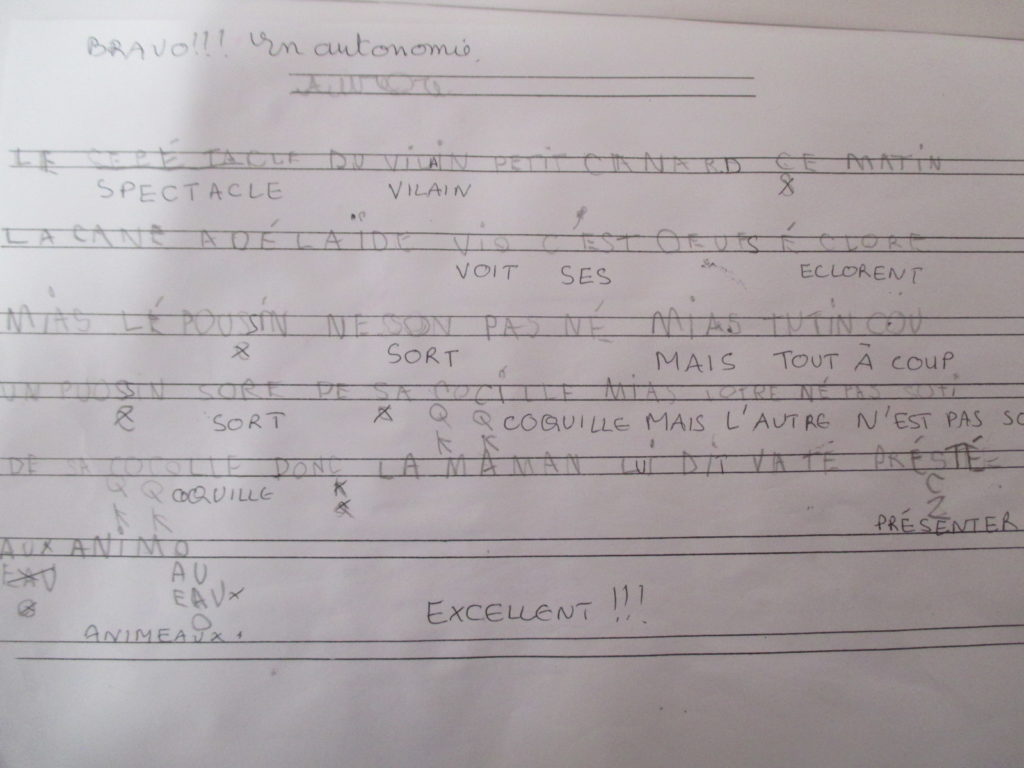 BRAVO!!! En autonomie.
LE CEPÉ TACLE DU VILAIN PETIT CANARD CE MATIN
SPECTACLE VILAIN
LA CANE ADÉLAÏDE C'EST OEUFS É CLORE
VOIT SES ECLORENT
MIAS LÉ POUSSIN NE SON PAS NÉ MIAS TUTIN COU
SORT MAIS TOUT À COUP
UN PUOSSIN SORE DE SA COCILLE MIAS LOTRE NÉ PAS SOTI
SORT Q Q COQUILLE MAIS L'AUTRE N'EST PAS SO
K K
DE SA COCOLLE DONC LA MAMAN LUI DIT VA TÉ PRÉSTÉ
Q Q COQUILLE K C
K K Z
PRÉSENTER
AUX ANIMO
EAU AU
EAUX
O
EXCELLENT !!!
ANIMEAUX.